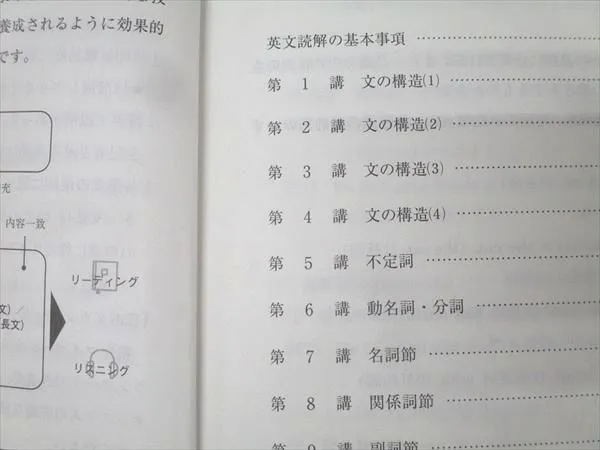 養成されるように効果的
です。
充
内容一致
文)／
長文)
リーディング
リスニング
英文読解の基本事項
第 1 講 文の構造(1)
第 2 講 文の構造(2)
第 3 講 文の構造(3)
第 4 講 文の構造(4)
第 5 講 不定詞
第 6 講 動名詞・分詞
第 7 講 名詞節
第 8 講 関係詞節
第 9 講 副詞節